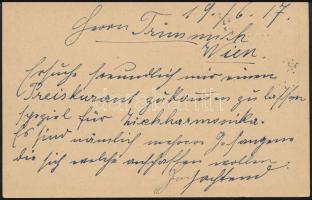 19./6. 17.
Herrn Trimmich
Wien.
Ersuche freundlich mir einen
Preiskurant zukommen zu lassen
speziel für Ziehharmonika.
Es sind nämlich mehrere Gefangene
die sich welche anschaffen wollen.
Hochachtend